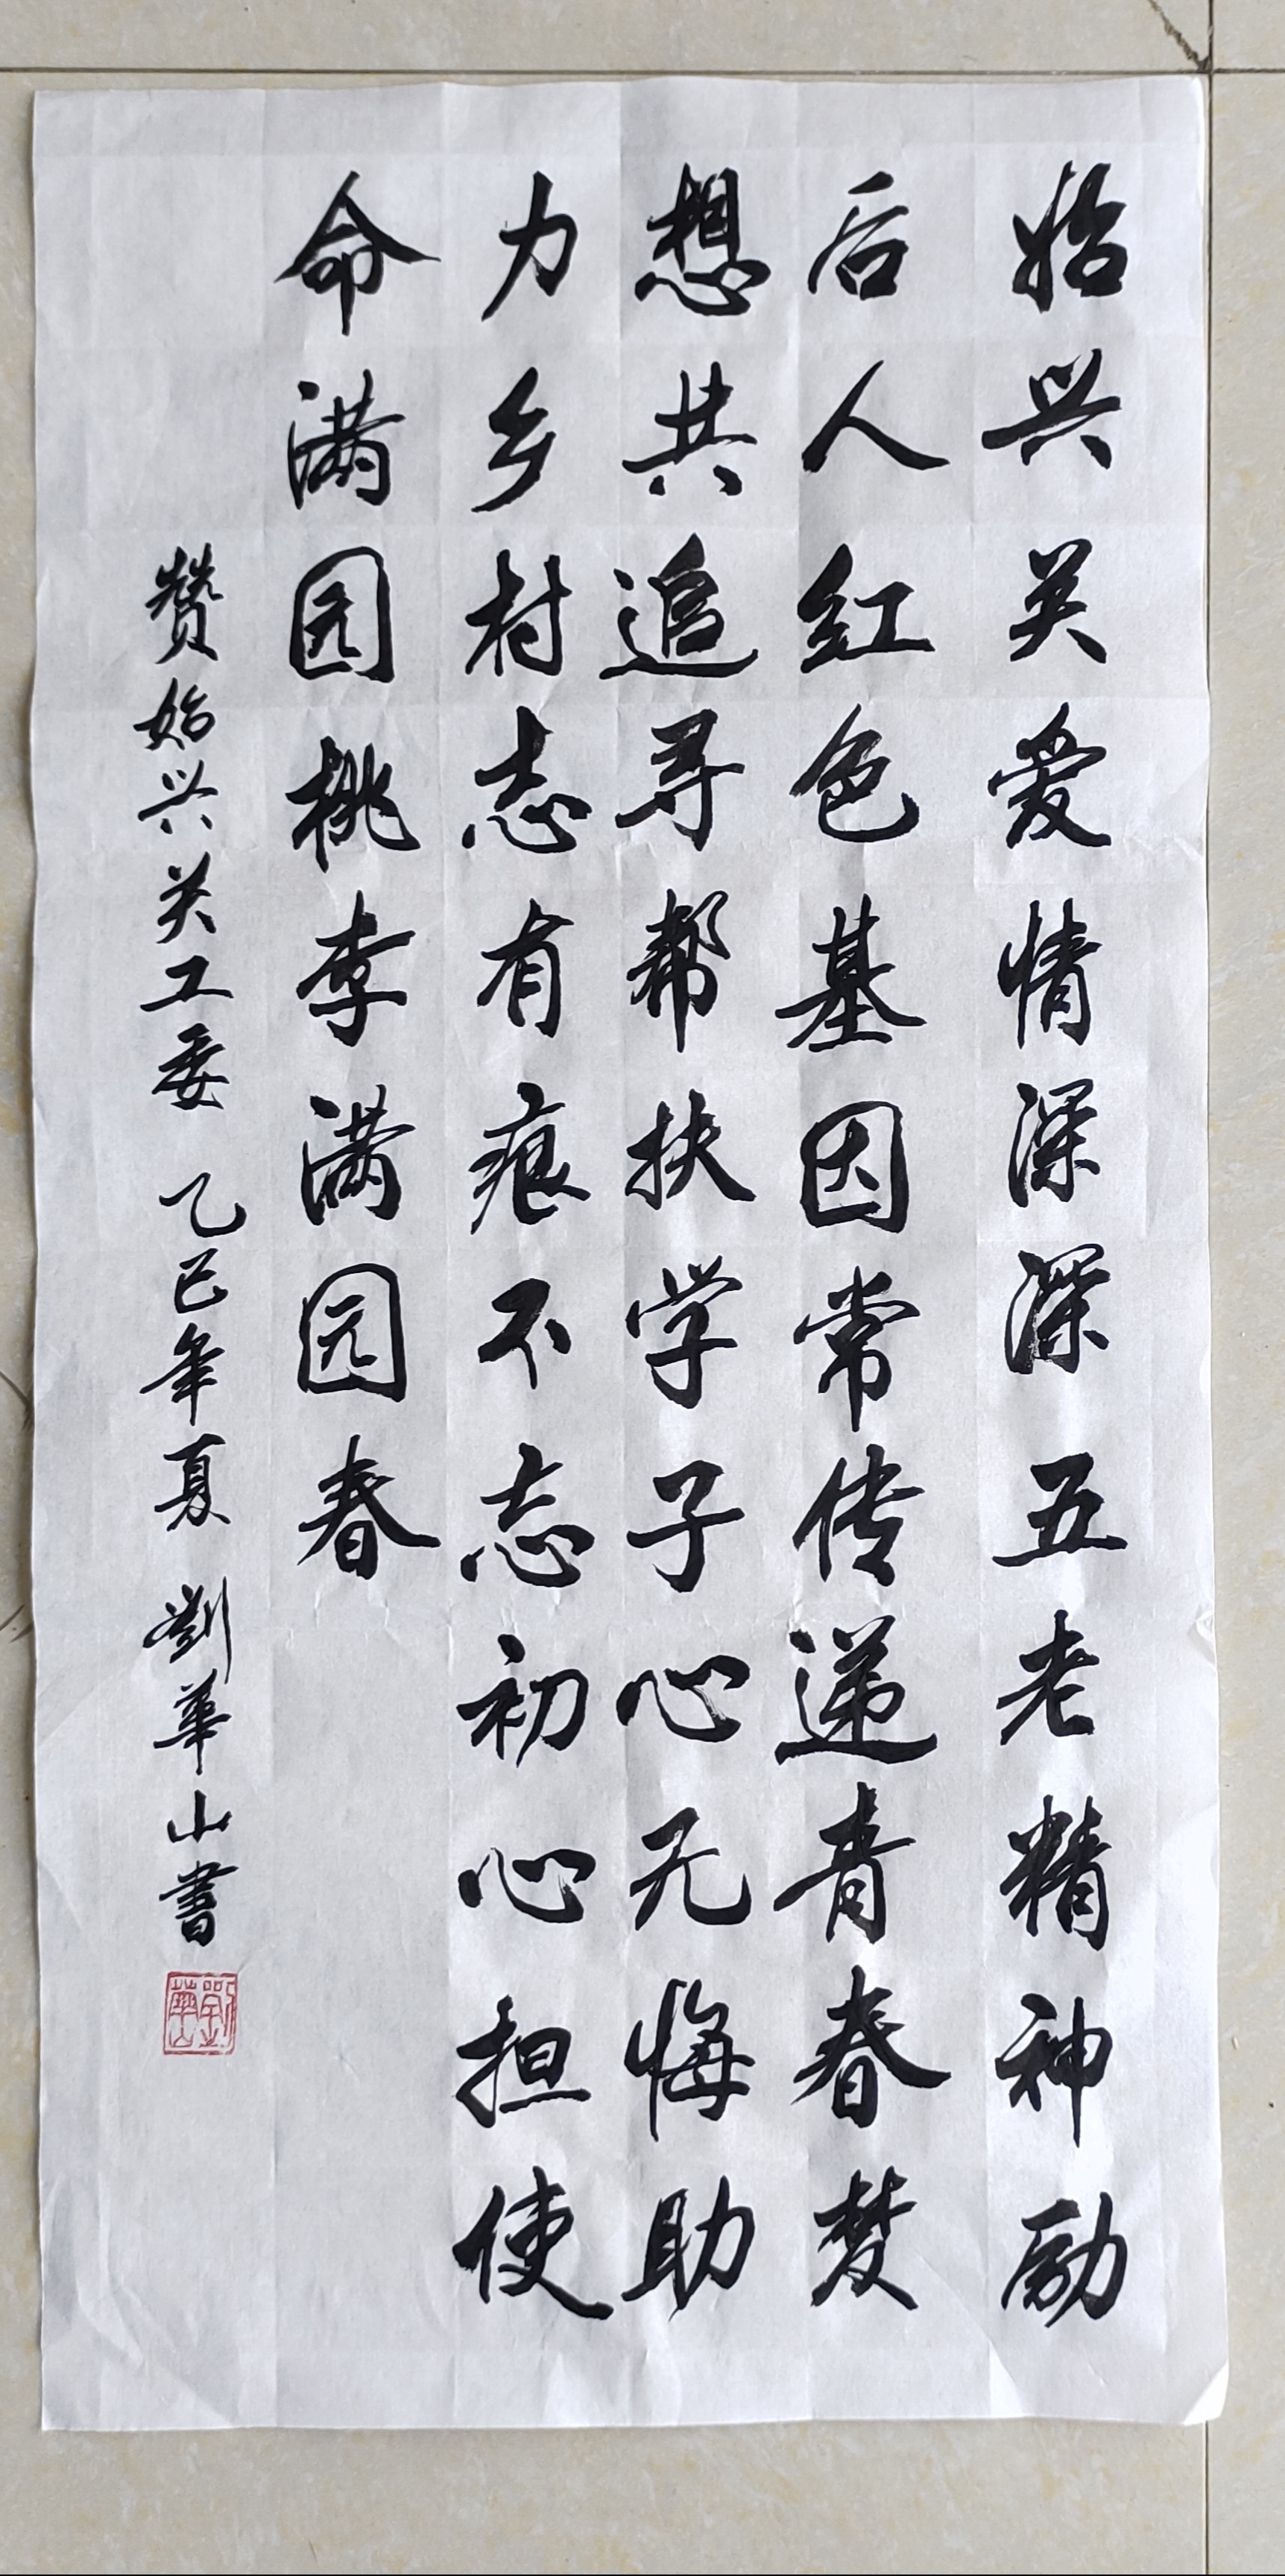 始兴关爱情深深五老精神励
后人红色基因常传递青春梦
想共追寻帮扶学子心无悔助
力乡村志有痕不志初心担使
命满园桃李满园春
赞始兴关工委 乙巳年夏 劉華山書
劉華山